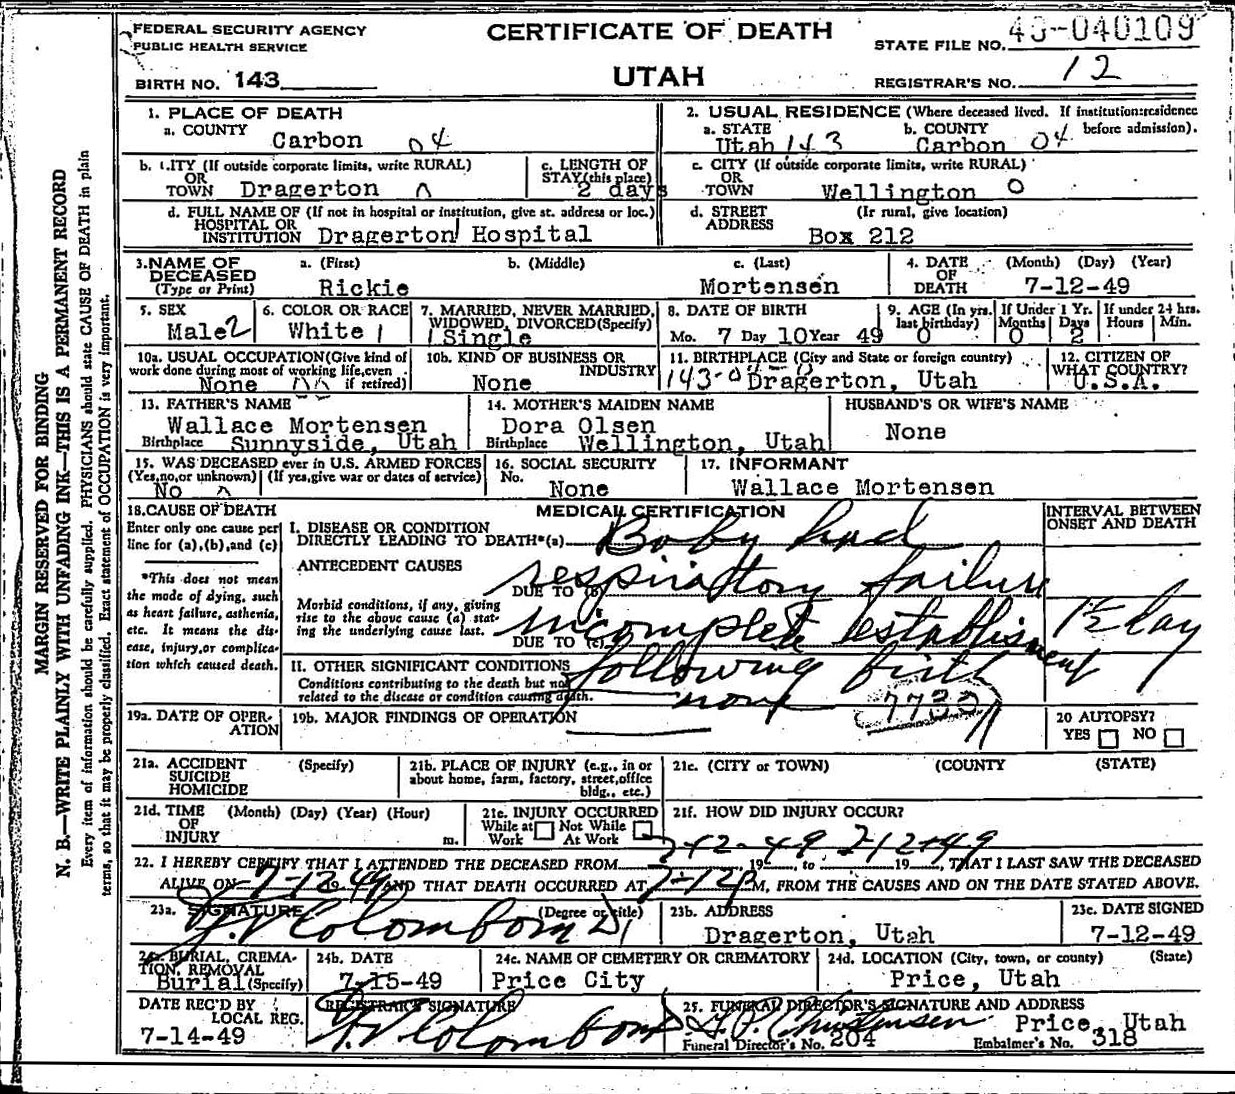 FEDERAL SECURITY AGENCY
PUBLIC HEALTH SERVICE
BIRTH NO. 143
CERTIFICATE OF DEATH
UTAH
STATE FILE NO. 49-040109
REGISTRAR'S NO. 12
MARGIN RESERVED FOR BINDING
N. B.—WRITE PLAINLY WITH UNFADING INK—THIS IS A PERMANENT RECORD
Every item of information should be carefully supplied. PHYSICIANS should state CAUSE OF DEATH in plain
terms, so that it may be properly classified. Exact statement of OCCUPATION is very important.
1. PLACE OF DEATH
a. COUNTY
Carbon 04
2. USUAL RESIDENCE (Where deceased lived. If institution:residence
before admission).
a. STATE
Utah 143
b. COUNTY
Carbon 04
b. CITY (If outside corporate limits, write RURAL)
OR
TOWN Dragerton
c. LENGTH OF
STAY (this place)
2 days
c. CITY (If outside corporate limits, write RURAL)
OR
TOWN Wellington 0
d. FULL NAME OF (If not in hospital or institution, give st. address or loc.)
HOSPITAL OR
INSTITUTION Dragerton Hospital
d. STREET (If rural, give location)
ADDRESS
Box 212
3. NAME OF
DECEASED
(Type or Print)
a. (First)
Rickie
b. (Middle)
c. (Last)
Mortensen
4. DATE (Month) (Day) (Year)
OF
DEATH 7-12-49
5. SEX
Male 2
6. COLOR OR RACE
White 1
7. MARRIED, NEVER MARRIED,
WIDOWED, DIVORCED (Specify)
1 Single
8. DATE OF BIRTH
Mo. 7 Day 10 Year 49
9. AGE (In yrs.
last birthday)
0
If Under 1 Yr.
Months Days
0 2
If under 24 hrs.
Hours Min.
10a. USUAL OCCUPATION (Give kind of
work done during most of working life, even
if retired)
None
10b. KIND OF BUSINESS OR
INDUSTRY
None
11. BIRTHPLACE (City and State or foreign country)
143-04 Dragerton, Utah
12. CITIZEN OF
WHAT COUNTRY?
U.S.A.
13. FATHER'S NAME
Wallace Mortensen
Birthplace Sunnyside, Utah
14. MOTHER'S MAIDEN NAME
Dora Olsen
Birthplace Wellington, Utah
HUSBAND'S OR WIFE'S NAME
None
15. WAS DECEASED ever in U.S. ARMED FORCES
(Yes, no, or unknown) (If yes, give war or dates of service)
No
16. SOCIAL SECURITY
No. None
17. INFORMANT
Wallace Mortensen
18. CAUSE OF DEATH
Enter only one cause per
line for (a), (b), and (c)
*This does not mean
the mode of dying, such
as heart failure, asthenia,
etc. It means the dis-
ease, injury, or complica-
tion which caused death.
MEDICAL CERTIFICATION
INTERVAL BETWEEN
ONSET AND DEATH
I. DISEASE OR CONDITION
DIRECTLY LEADING TO DEATH*(a) Baby had
ANTECEDENT CAUSES
respiratory failure
DUE TO (b)
Morbid conditions, if any, giving
rise to the above cause (a) stat-
ing the underlying cause last.
incomplete establishment
DUE TO (c)
II. OTHER SIGNIFICANT CONDITIONS
following birth
Conditions contributing to the death but not
related to the disease or condition causing death.
none
19a. DATE OF OPER-
ATION
19b. MAJOR FINDINGS OF OPERATION
20 AUTOPSY?
YES NO
21a. ACCIDENT (Specify)
SUICIDE
HOMICIDE
21b. PLACE OF INJURY (e.g., in or
about home, farm, factory, street, office
bldg., etc.)
21c. (CITY or TOWN) (COUNTY) (STATE)
21d. TIME (Month) (Day) (Year) (Hour)
OF
INJURY m.
21e. INJURY OCCURRED
While at Work Not While At Work
21f. HOW DID INJURY OCCUR?
22. I HEREBY CERTIFY THAT I ATTENDED THE DECEASED FROM 7-12-49 19 , to 7-12-49 19 , THAT I LAST SAW THE DECEASED
ALIVE ON 7-12-49 AND THAT DEATH OCCURRED AT 7-12P M, FROM THE CAUSES AND ON THE DATE STATED ABOVE.
23a. SIGNATURE (Degree or title)
F. V. Colombo M D
23b. ADDRESS
Dragerton, Utah
23c. DATE SIGNED
7-12-49
24a. BURIAL, CREMA-
TION, REMOVAL
Burial (Specify)
24b. DATE
7-15-49
24c. NAME OF CEMETERY OR CREMATORY
Price City
24d. LOCATION (City, town, or county) (State)
Price, Utah
DATE REC'D BY
LOCAL REG.
7-14-49
REGISTRAR'S SIGNATURE
F. V. Colombo MD
25. FUNERAL DIRECTOR'S SIGNATURE AND ADDRESS
Christensen Price, Utah
Funeral Director's No. 204 Embalmer's No. 318